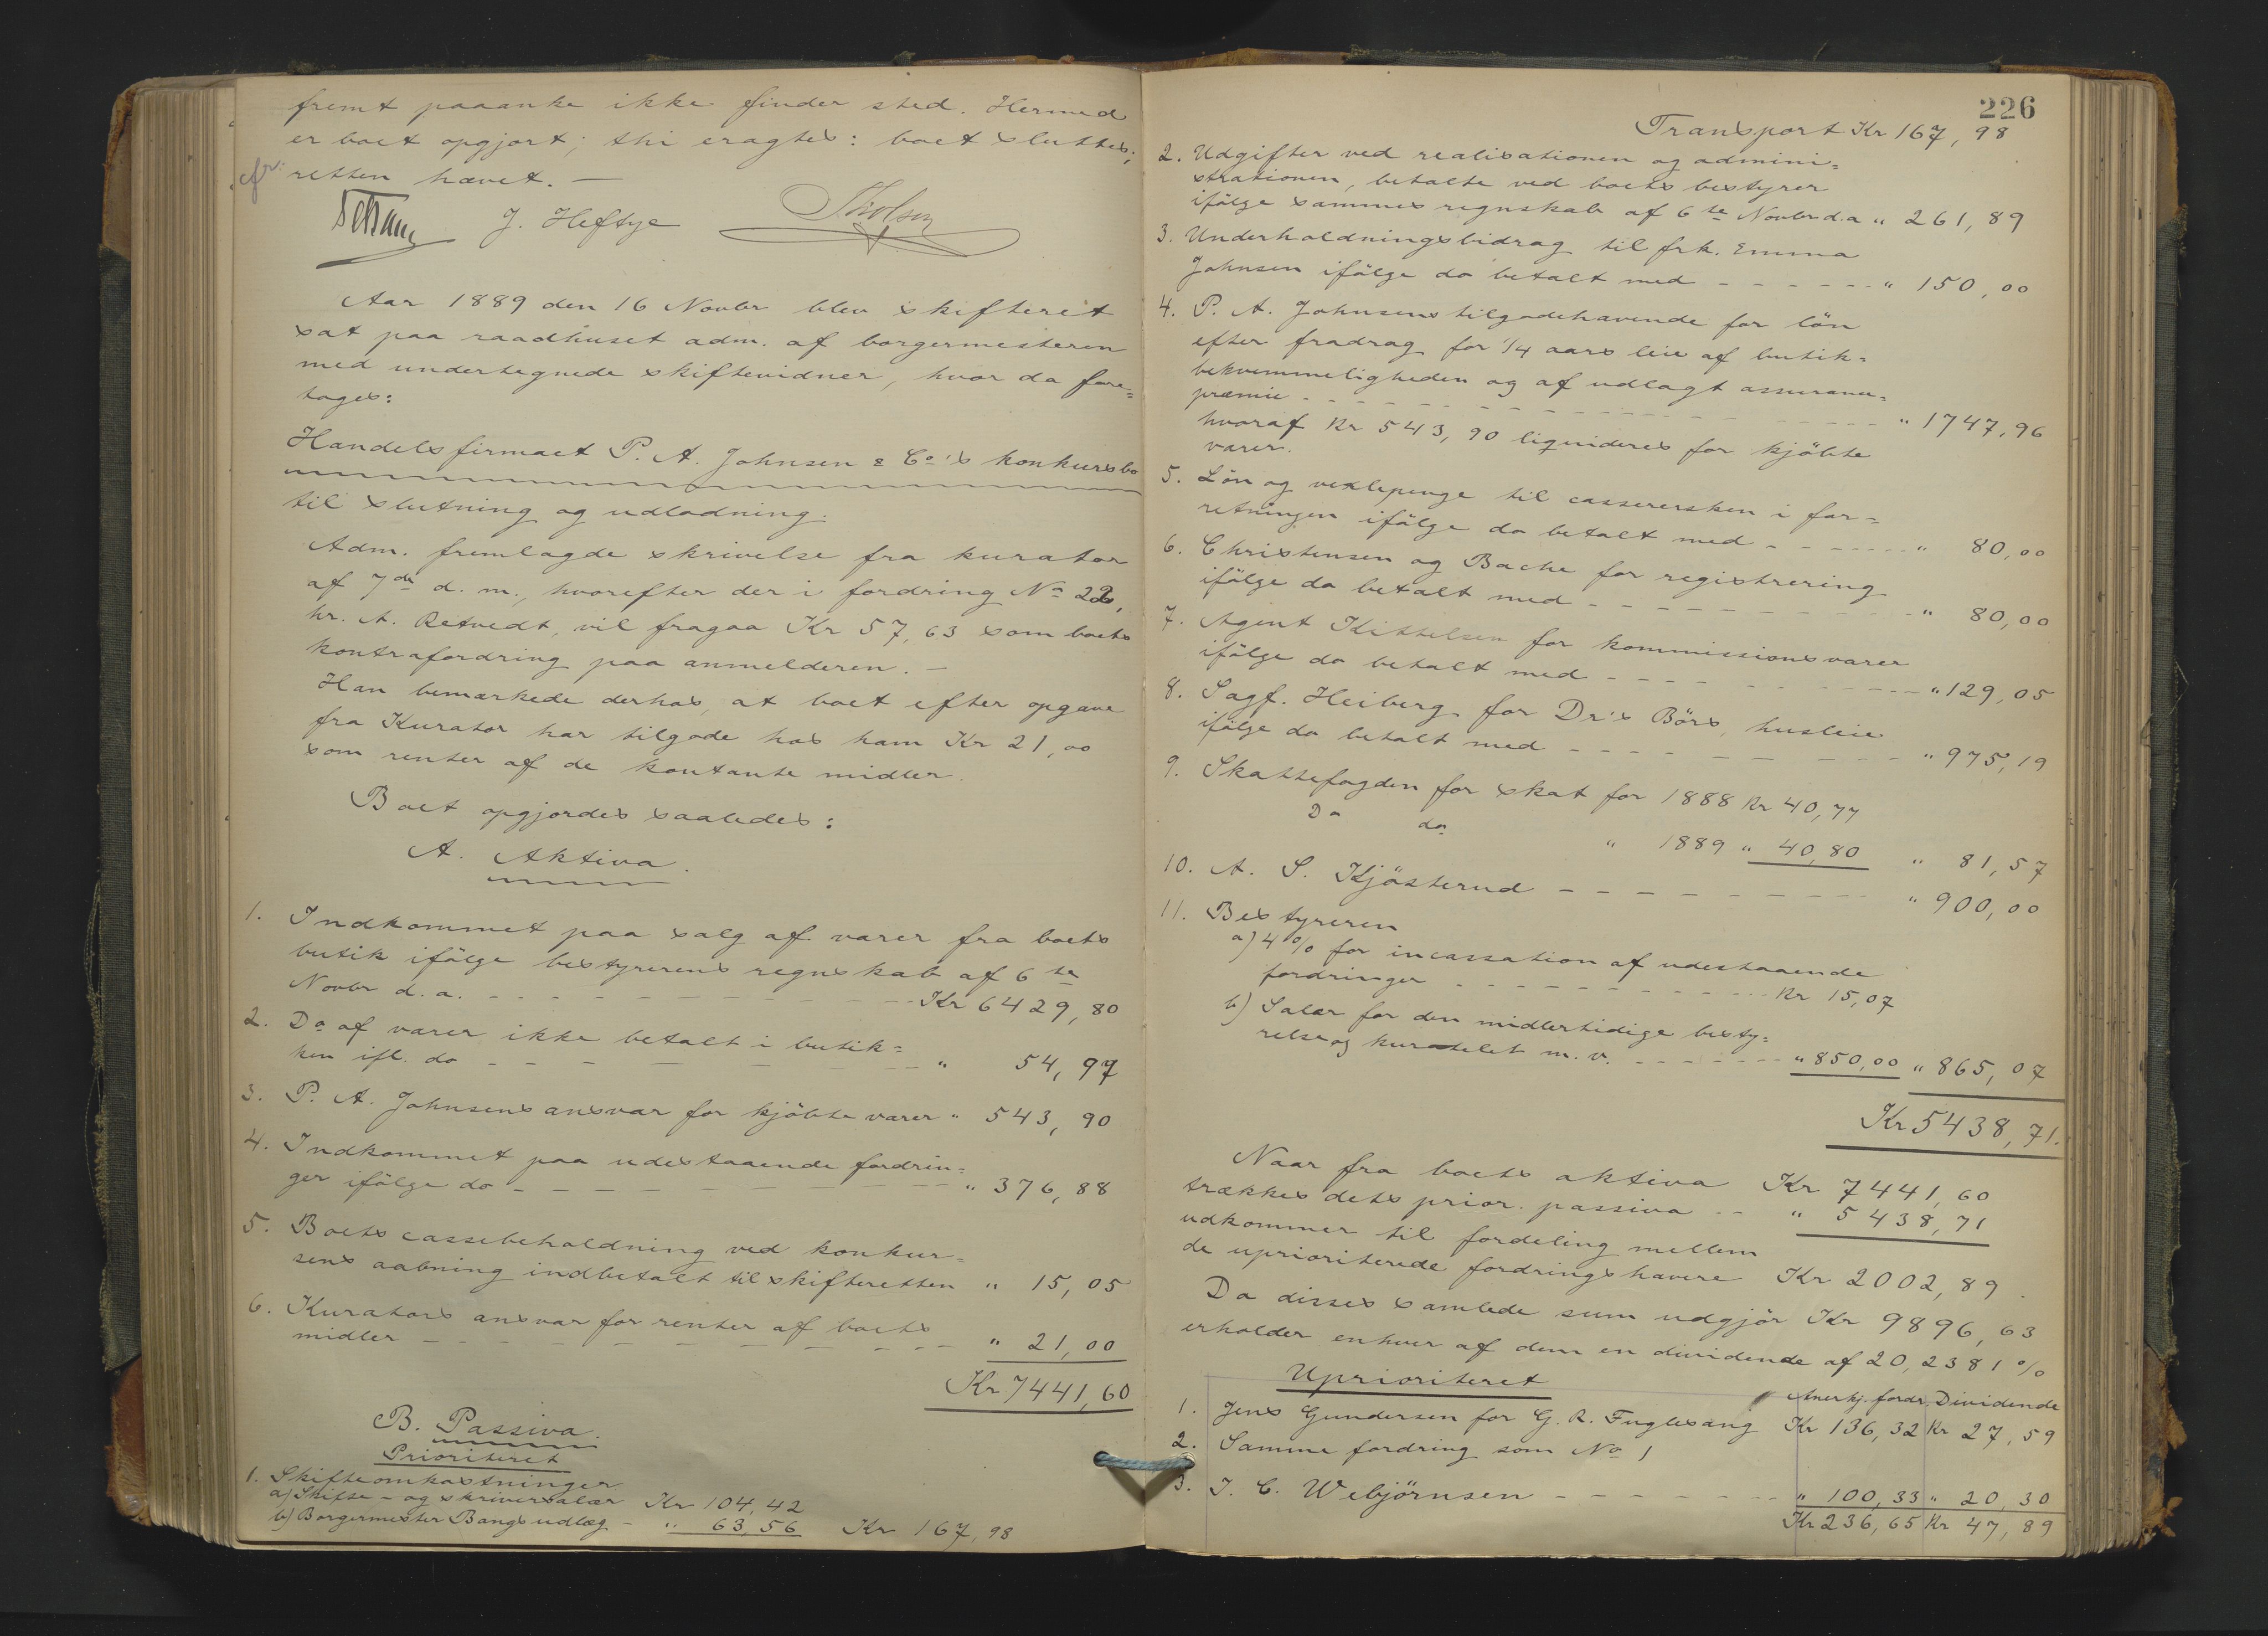 fremt paaanke ikke finder sted. Hermed
er boet opgjort; thi eragtes: boet sluttes;
cfr: retten hævet. —
J. Heftye
Aar 1889 den 16 Novbr blev skifteret
sat paa raadhuset adm. af borgermesteren
med undertegnede skiftevidner, hvor da fore=
toges:
Handelsfirmaet P. A. Johnsen & Co's konkursbo
til slutning og udlodning.
Adm. fremlagde skrivelse fra kurator
af 7de d. m., hvorefter der i fordring No 22,
hr. A. Retvedt, vil fragaa Kr 57,63 som boets
kontrafordring paa anmelderen. —
Han bemærkede derhos, at boet efter opgave
fra Kurator har tilgode hos ham Kr 21,00
som renter af de kontante midler.
Boet opgjordes saaledes:
A. Aktiva.
1. Indkommet paa salg af varer fra boets
butik ifölge bestyrerens regnskab af 6te
Novbr d. a. - - - - - - - - - Kr 6429,80
2. Do af varer ikke betalt i butik=
ken ifl. do - - - - - - - - " 54,97
3. P. A. Johnsens ansvar for kjöbte varer " 543,90
4. Indkommet paa udestaaende fordrin=
ger ifölge do - - - - - - - - " 376,88
5. Boets cassebeholdning ved konkur=
sens aabning indbetalt til skifteretten " 15,05
6. Kurators ansvar for renter af boets
midler - - - - - - - - - " 21,00
Kr 7441,60
B. Passiva.
Prioriteret
1. Skifteomkostninger
a) Skifte- og skriversalær Kr 104,42
b) Borgermester Bangs udlæg - " 63,56 Kr 167,98
226
Transport Kr 167,98
2. Udgifter ved realisationen og admini=
strationen, betalte ved boets bestyrer
ifölge sammes regnskab af 6te Novbr d. a " 261,89
3. Underholdningsbidrag til frk. Emma
Johnsen ifölge do betalt med - - - - - - " 150,00
4. P. A. Johnsens tilgodehavende for lön
efter fradrag for 1/4 aars leie af butik=
bekvemmeligheden og af udlagt assurance=
præmie - - - - - - - - - - - " 1747,96
hvoraf Kr 543,90 liqvideres for kjöbte
varer.
5. Lön og vexlepenge til casserersken i for=
retningen ifölge do betalt med - - - - - - " 80,00
6. Christensen og Bache for registrering
ifölge do betalt med - - - - - - - - - " 80,00
7. Agent Kittelsen for kommissionsvarer
ifölge do betalt med - - - - - - - - " 129,05
8. Sagf. Heiberg for Dr's Börs, husleie
ifölge do betalt med - - - - - - - - " 975,19
9. Skattefogden for skat for 1888 Kr 40,77
Do do " 1889 " 40,80 " 81,57
10. A. S. Kjösterud - - - - - - - - " 900,00
11. Bestyreren
a) 4% for incassation af udestaaende
fordringer - - - - - - - - - Kr 15,07
b) Salær for den midlertidige besty=
relse og kuratelet m. v. - - - - - - " 850,00 " 865,07
Kr 5438,71.
Naar fra boets aktiva Kr 7441,60
trækkes dets prior. passiva - - " 5438,71
udkommer til fordeling mellem
de uprioriterede fordringshavere Kr 2002,89.
Da disses samlede sum udgjör Kr 9896,63
erholder enhver af dem en dividende af 20,2381%
Uprioriteret Anerkj. fordr. Dividende
1. Jens Gundersen for G. R. Fuglesang Kr 136,32 Kr 27,59
2. Samme fordring som No 1
3. J. C. Webjörnsen - - - - - - - " 100,33 " 20,30
Kr 236,65 Kr 47,89